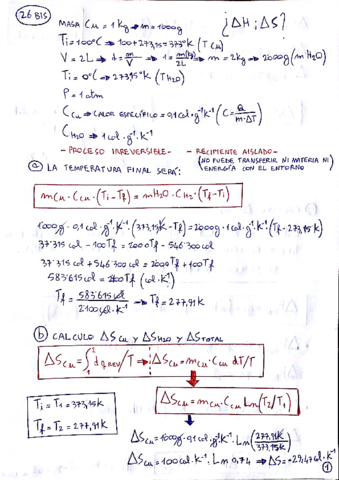 26 BIS
MASA Cu = 1 Kg → m = 1000g
¿ΔH ; ΔS?
Ti = 100ºC → 100 + 273,15 = 373ºK (T Cu)
V = 2L → d = m/V → 1 = m(kg)/2L → m = 2kg → 2000g (m H2O)
Ti = 0ºC → 273,15ºK (T H2O)
P = 1 atm
C Cu → CALOR ESPECÍFICO = 0,1 cal·g⁻¹K⁻¹ (C = Q/m·ΔT)
C H2O → 1 cal·g⁻¹·K⁻¹
- PROCESO IRREVERSIBLE - - RECIPIENTE AISLADO -
(NO PUEDE TRANSFERIR NI MATERIA NI ENERGÍA CON EL ENTORNO)
a) LA TEMPERATURA FINAL SERÁ:
mCu · CCu · (Ti - Tf) = mH2O · CH2 · (Tf - Ti)
1000g · 0,1 cal·g⁻¹·K⁻¹ (373,15K - Tf) = 2000g · 1 cal·g⁻¹·K⁻¹ (Tf - 273,15K)
37'315 cal - 100Tf = 2000Tf - 546'300 cal
37'315 cal + 546'300 cal = 2000Tf + 100Tf
583'615 cal = 2100Tf (cal·K⁻¹)
Tf = 583'615 cal / 2100 cal·K⁻¹ → Tf = 277,91K
b) CALCULO ΔS Cu Y ΔS H2O Y ΔS TOTAL
ΔS Cu = ∫₁² dq REV/T → ΔS Cu = mCu · CCu dT/T
Ti = T1 = 373,15K
Tf = T2 = 277,91K
ΔS Cu = mCu · CCu Ln(T2/T1)
ΔS Cu = 1000g · 0,1 cal·g⁻¹·K⁻¹ · Ln(277,91K/373,15K)
ΔS Cu = 100 cal·K⁻¹ · Ln 0,74 → ΔS = -29,47 cal·K⁻¹
1